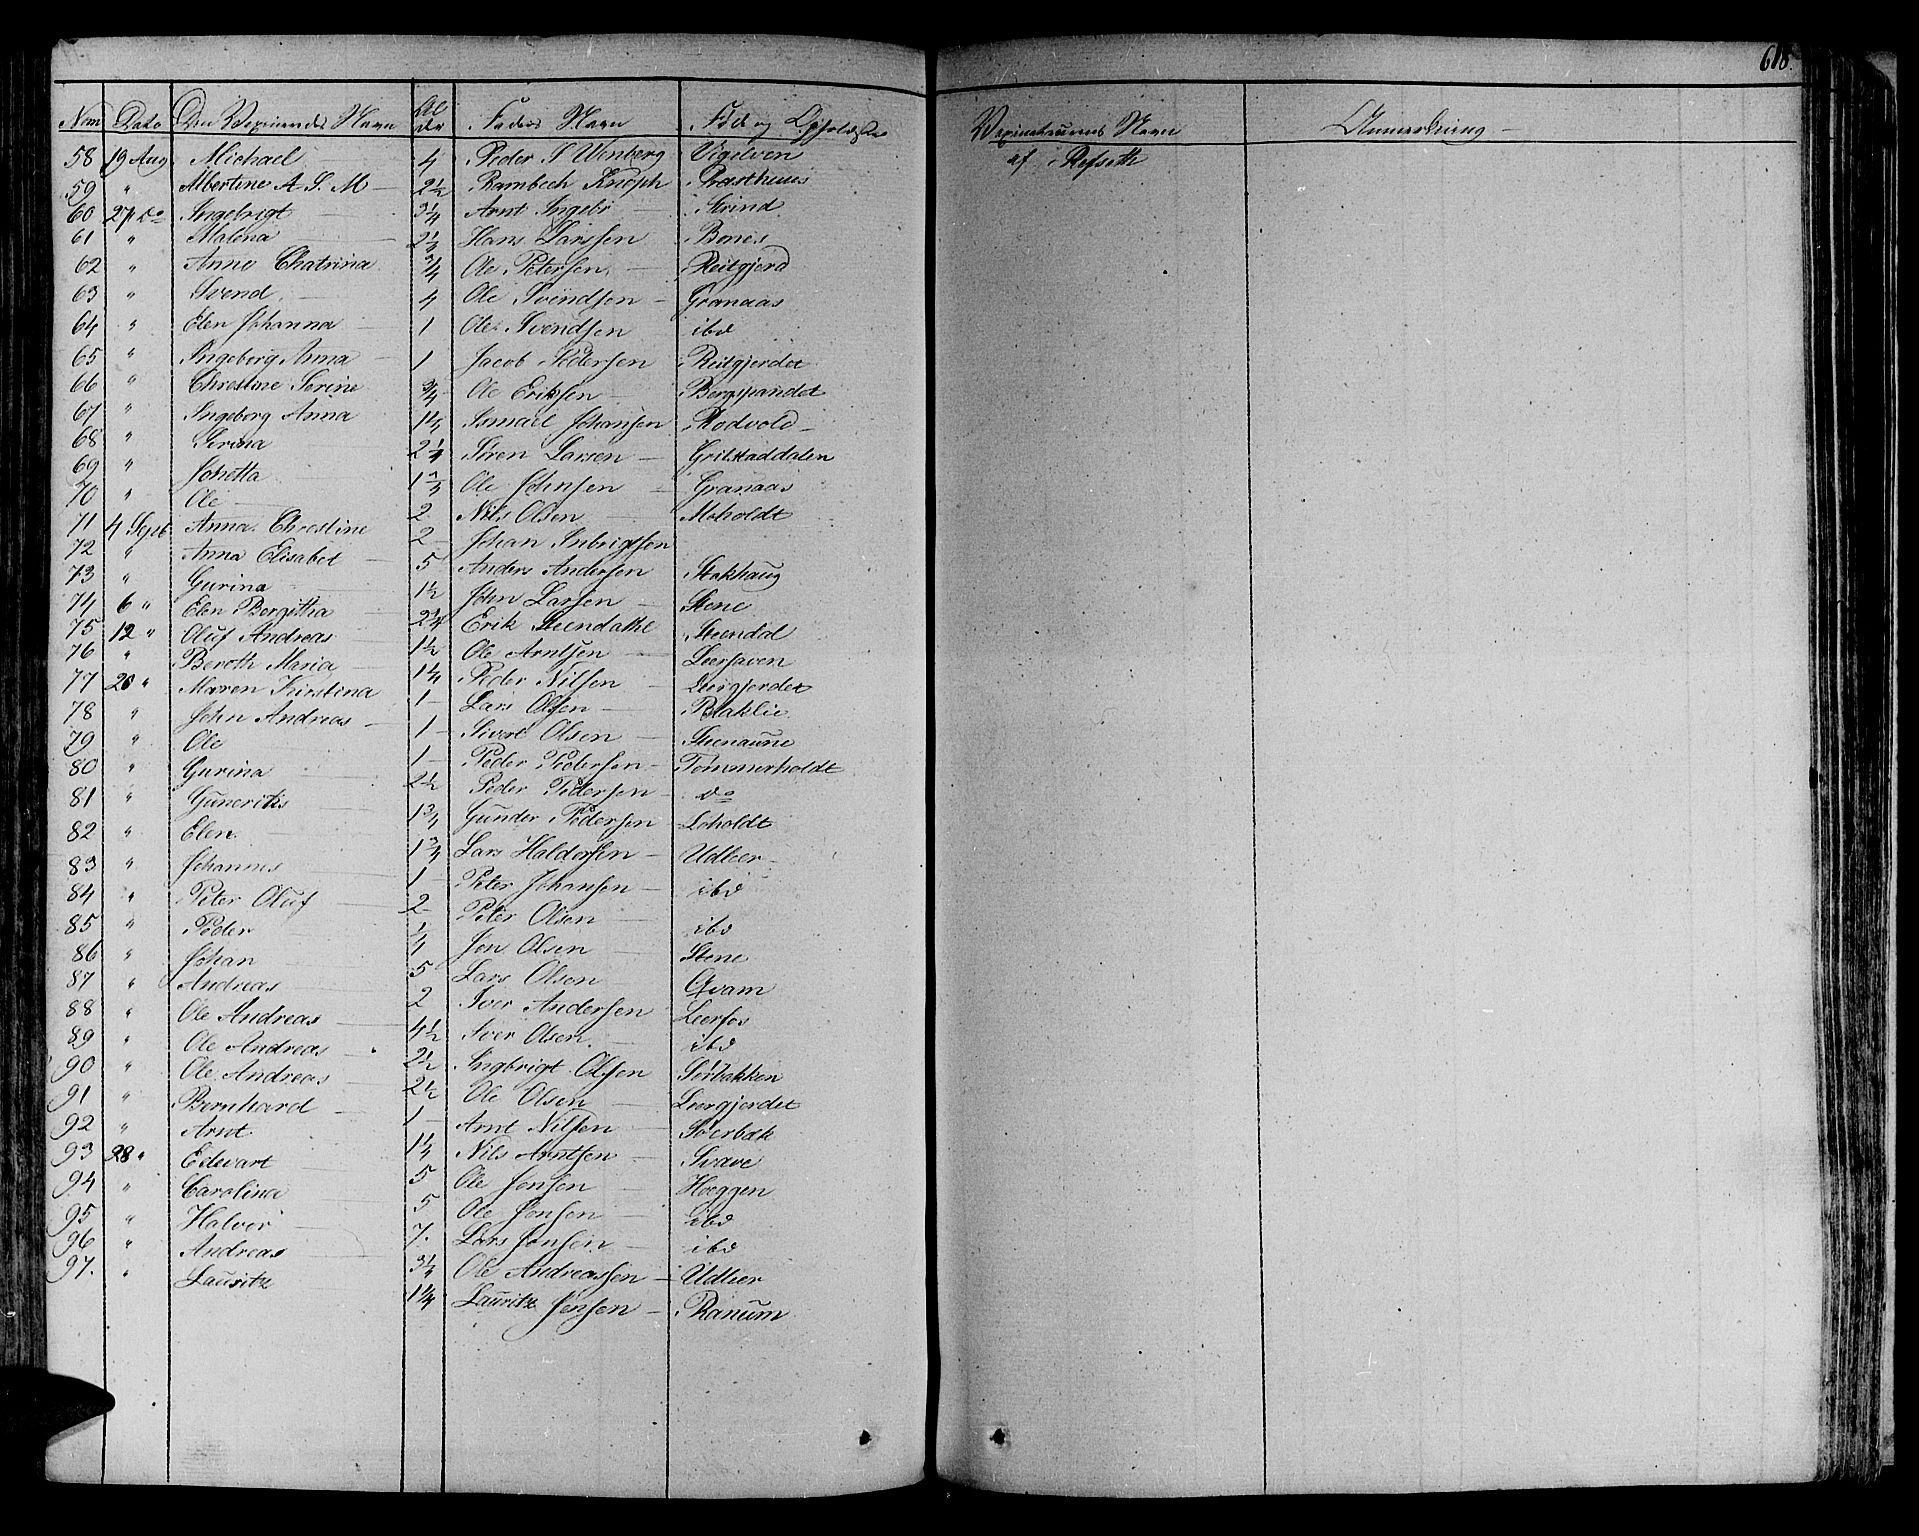 618.
Num Dato Den Vaxineredes Navn Alder Faders Navn Føde og Opholdsted Vaxinateurens Navn Anmerkning
58 19 Aug Michael 4 Peder S Wenberg Vigelven af Refseth
59 " Albertine A S M 2½ Rambech Knoph Prasthuus
60 27 do Ingebrigt 3¼ Arnt Ingebr Strind
61 " Malena 2½ Hans Larssen Bones
62 " Anne Chatrina ¾ Ole Petersen Reitgjerd
63 " Svend 4 Ole Svendsen Granaas
64 " Elen Johanna 1 Ole Svendsen ibd
65 " Ingeborg Anna 1 Jacob Pedersen Reitgjerdet
66 " Christine Serine ¾ Ole Eriksen Bergspandet
67 " Ingeborg Anna Ismael Johansen Rodvold
68 " Serina 2¼ Søren Larsen Grilstaddalen
69 " Johetta Ole Johnsen Granaas
70 " Ole 2 Nils Olsen Moholdt
71 4 Sept Anna Chrestine 2 Johan Inbrigtsen
72 " Anna Elisabet 5 Anders Andersen Stokhaug
73 " Gurina 1½ John Larsen Stene
74 6 " Elen Bergitha 2¼ Erik Steendahl Steendal
75 12 " Oluf Andreas 1½ Ole Arntsen Leersaven
76 " Bereth Maria 1¼ Peder Nilsen Leirgjerdet
77 20 " Maren Kirstina 1 Lars Olsen Blaklie
78 " John Andreas 1 Sivert Olsen Steenaune
79 " Ole 1 Peder Pedersen Tømmerholdt
80 " Gurina 2½ Peder Pedersen do
81 " Guneritis 1¾ Gunder Pedersen Loholdt
82 " Elen 1¾ Lars Haldorsen Udleer
83 " Johannes 1 Peter Johansen ibd
84 " Peter Oluf 2 Peter Olsen ibd
85 " Peder ¼ Jon Olsen Stene
86 " Johan 5 Lars Olson Qvam
87 " Andreas 2 Iver Andersen Leerfos
88 " Ole Andreas 4½ Iver Olsen ibd
89 " Ole Andreas 2½ Ingbrigt Olsen Sørbakken
90 " Ole Andreas 2½ Ole Olsen Leergjerdet
91 " Bernhard 1 Arnt Nilsen Soerbak
92 " Arnt 1¼ Nils Arntsen Svave
93 28 " Edevart 5 Ole Jonsen Hoeggen
94 " Carolina 5 Ole Jonsen ibd
95 " Halver 7. Lars Jonsen ibd
96 " Andreas 3¼ Ole Andreassen Udleer
97. " Lauritz 1¼ Lauritz Jensen Ranum